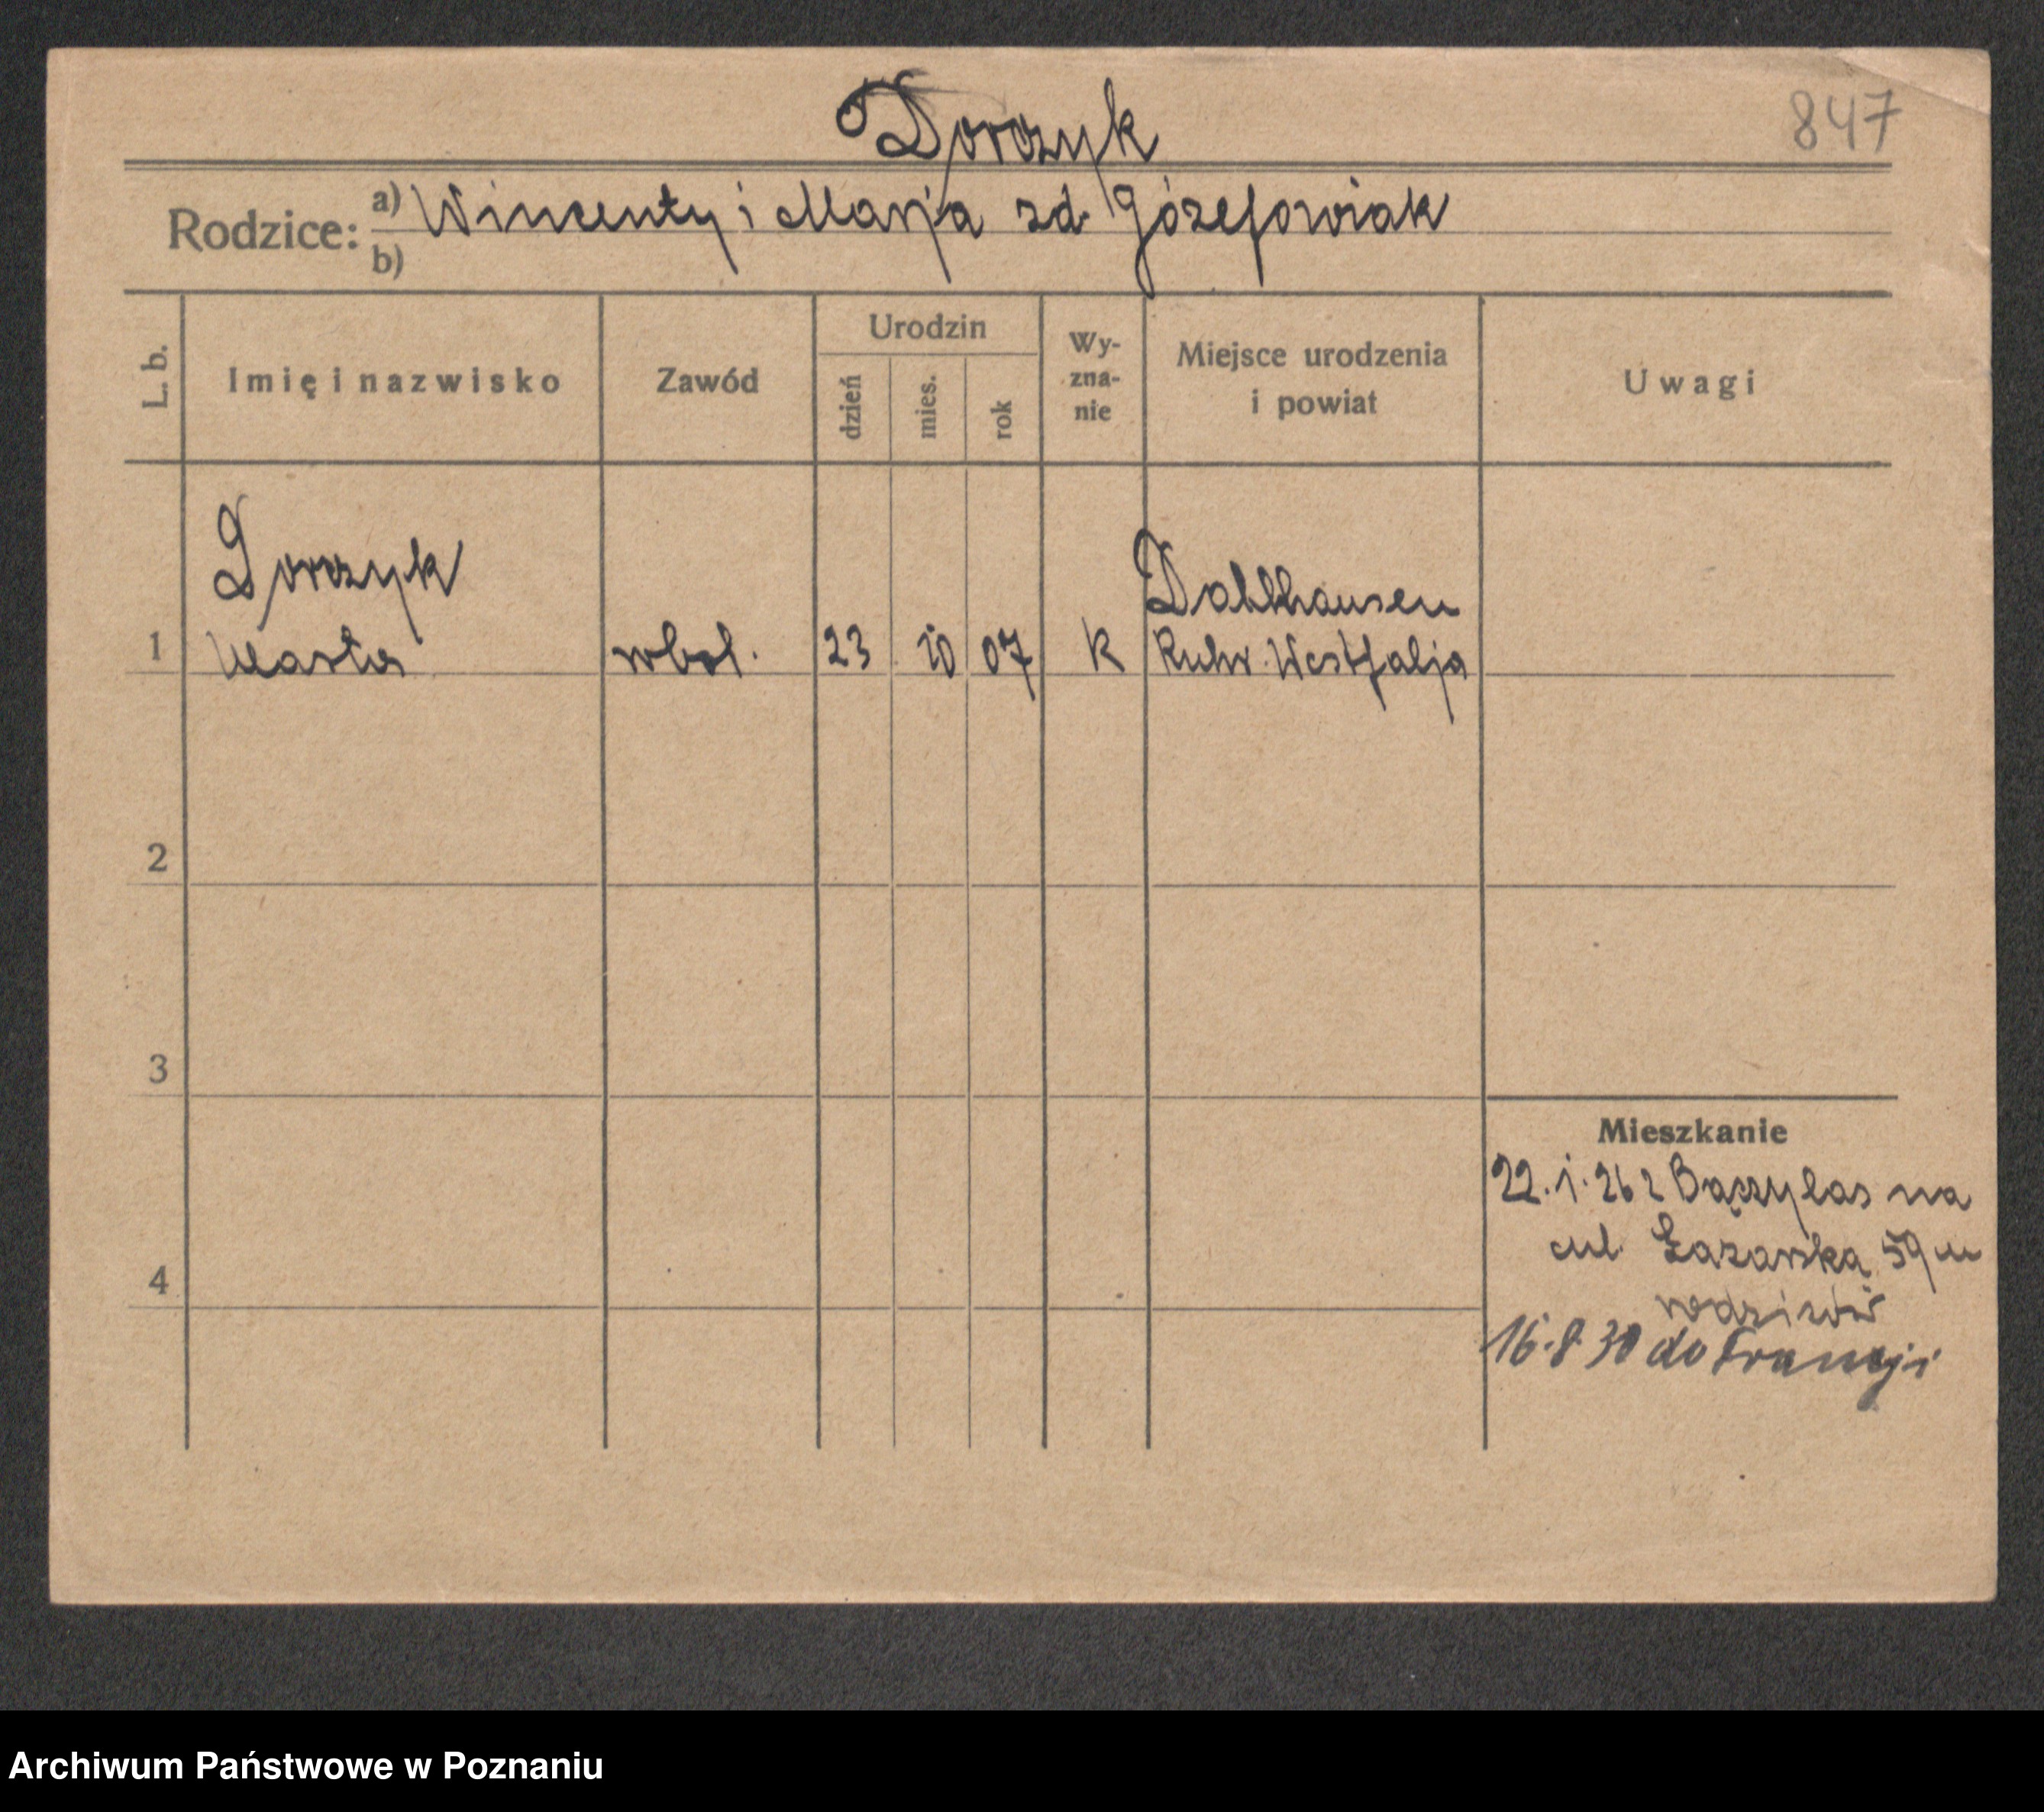 Dorczyk
847
Rodzice: a) Wincenty i Marja zd. Józefowiak
b)
L. b.
Imię i nazwisko
Zawód
Urodzin
dzień
mies.
rok
Wy-
zna-
nie
Miejsce urodzenia
i powiat
Uwagi
Dorczyk
Marta
robot.
23
10
07
K
Dahlhausen
Ruhr. Westfalja
1
2
3
4
Mieszkanie
22.1.26 z na
ul. Łazarską 59 u
rodziców
16.8 30 do Francji
Archiwum Państwowe w Poznaniu